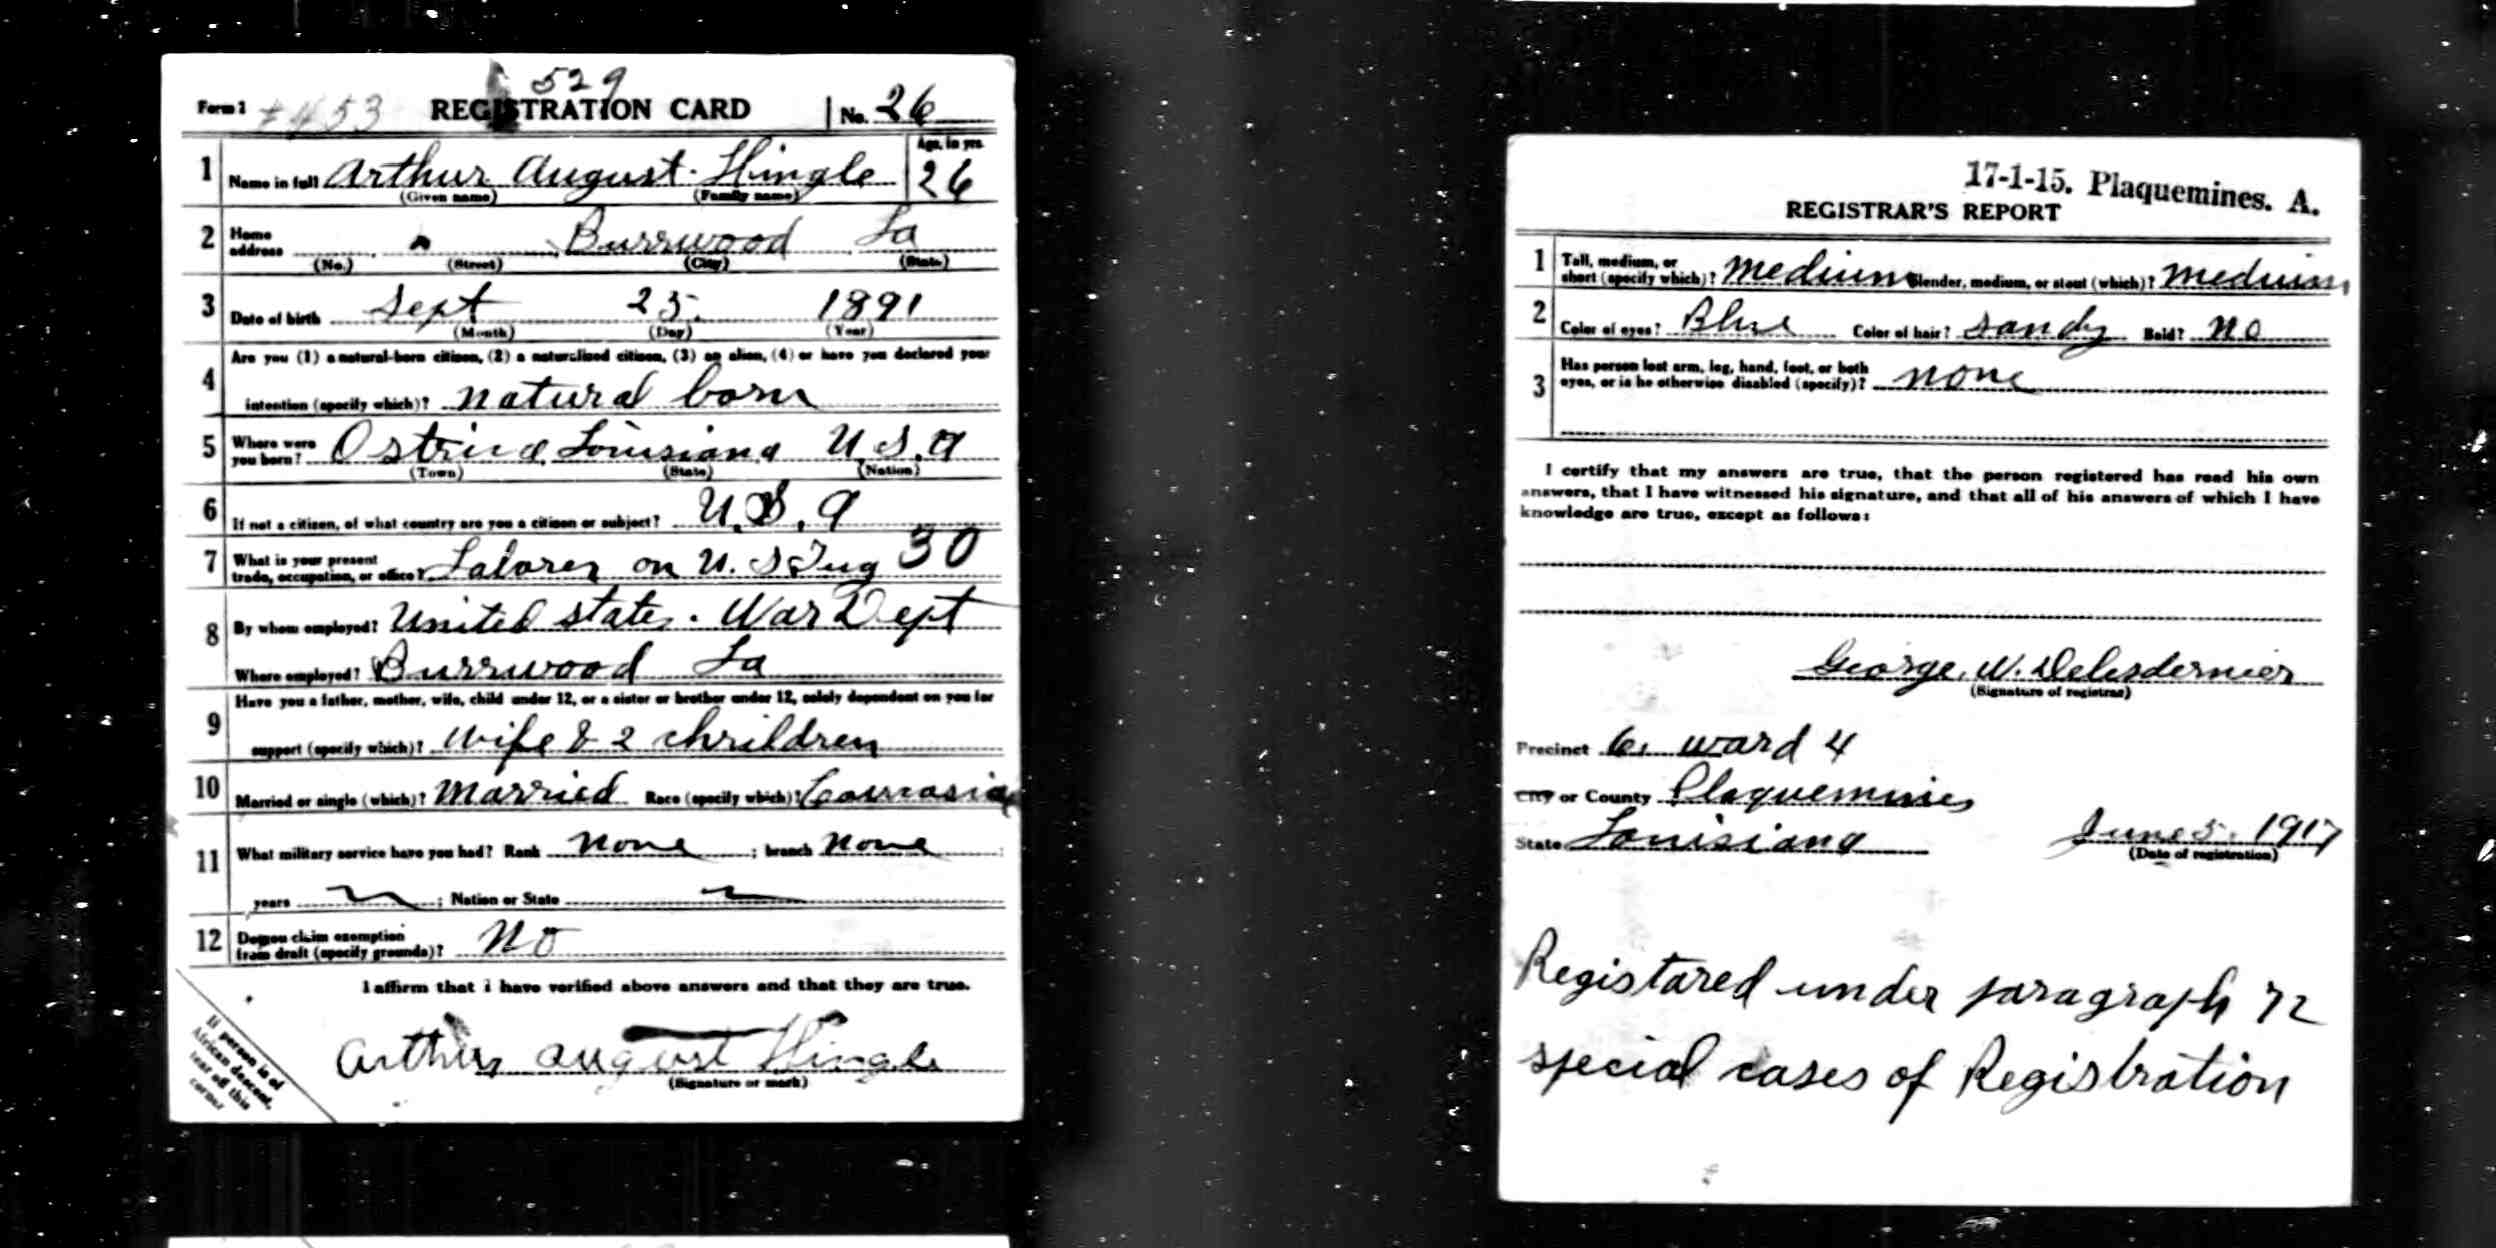 529
Form 1 #453 REGISTRATION CARD No. 26
1 Name in full Arthur August Hingle Age, in yrs. 26
(Given name) (Family name)
2 Home address Burrwood La
(No.) (Street) (City) (State)
3 Date of birth Sept 25. 1891
(Month) (Day) (Year)
4 Are you (1) a natural-born citizen, (2) a naturalized citizen, (3) an alien, (4) or have you declared your
intention (specify which)? natural born
5 Where were you born? Louisiana U.S.A
(Town) (State) (Nation)
6 If not a citizen, of what country are you a citizen or subject? U.S.A
7 What is your present trade, occupation, or office? Laborer on U. S Tug 30
8 By whom employed? United states. War Dept
Where employed? Burrwood La
9 Have you a father, mother, wife, child under 12, or a sister or brother under 12, solely dependent on you for
support (specify which)? wife & 2 chrildren
10 Married or single (which)? married Race (specify which)?
11 What military service have you had? Rank none ; branch none ;
years ; Nation or State
12 Do you claim exemption from draft (specify grounds)? No
I affirm that I have verified above answers and that they are true.
Arthur August Hingle
(Signature or mark)
If person is of
African descent,
tear off this
corner
17-1-15. Plaquemines. A.
REGISTRAR'S REPORT
1 Tall, medium, or short (specify which)? medium Slender, medium, or stout (which)? medium
2 Color of eyes? Blue Color of hair? sandy Bald? no
3 Has person lost arm, leg, hand, foot, or both
eyes, or is he otherwise disabled (specify)? none
I certify that my answers are true, that the person registered has read his own
answers, that I have witnessed his signature, and that all of his answers of which I have
knowledge are true, except as follows:
George. W. Delesdernier
(Signature of registrar)
Precinct 6. ward 4
City or County Plaquemines
State Louisiana June 5. 1917
(Date of registration)
Registared under paragraph 72
special cases of Registration